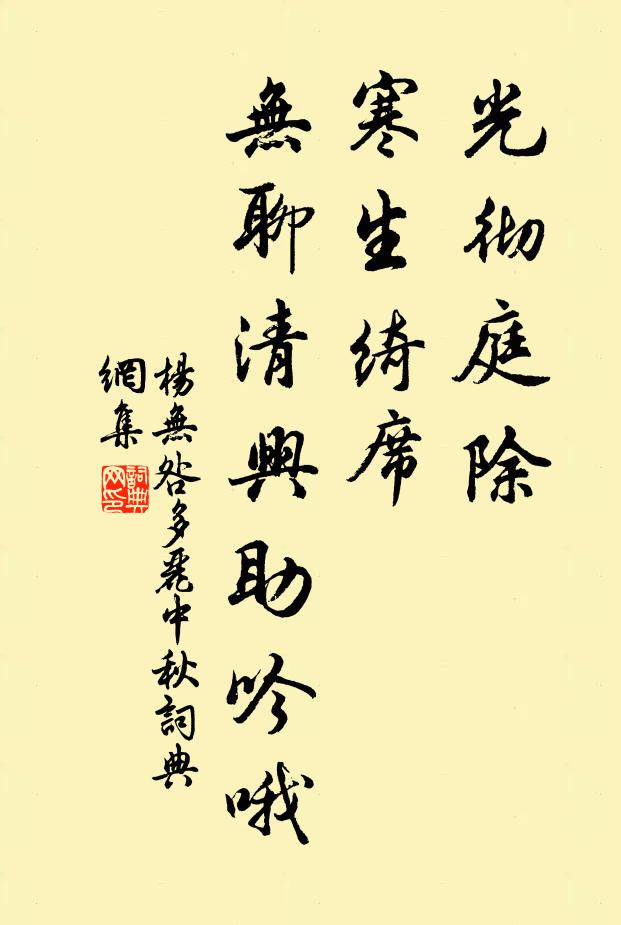 光彻庭除
寒生绮席
無聊清興助吟哦
楊無咎多麗中秋詞典
網集
詞典
网印